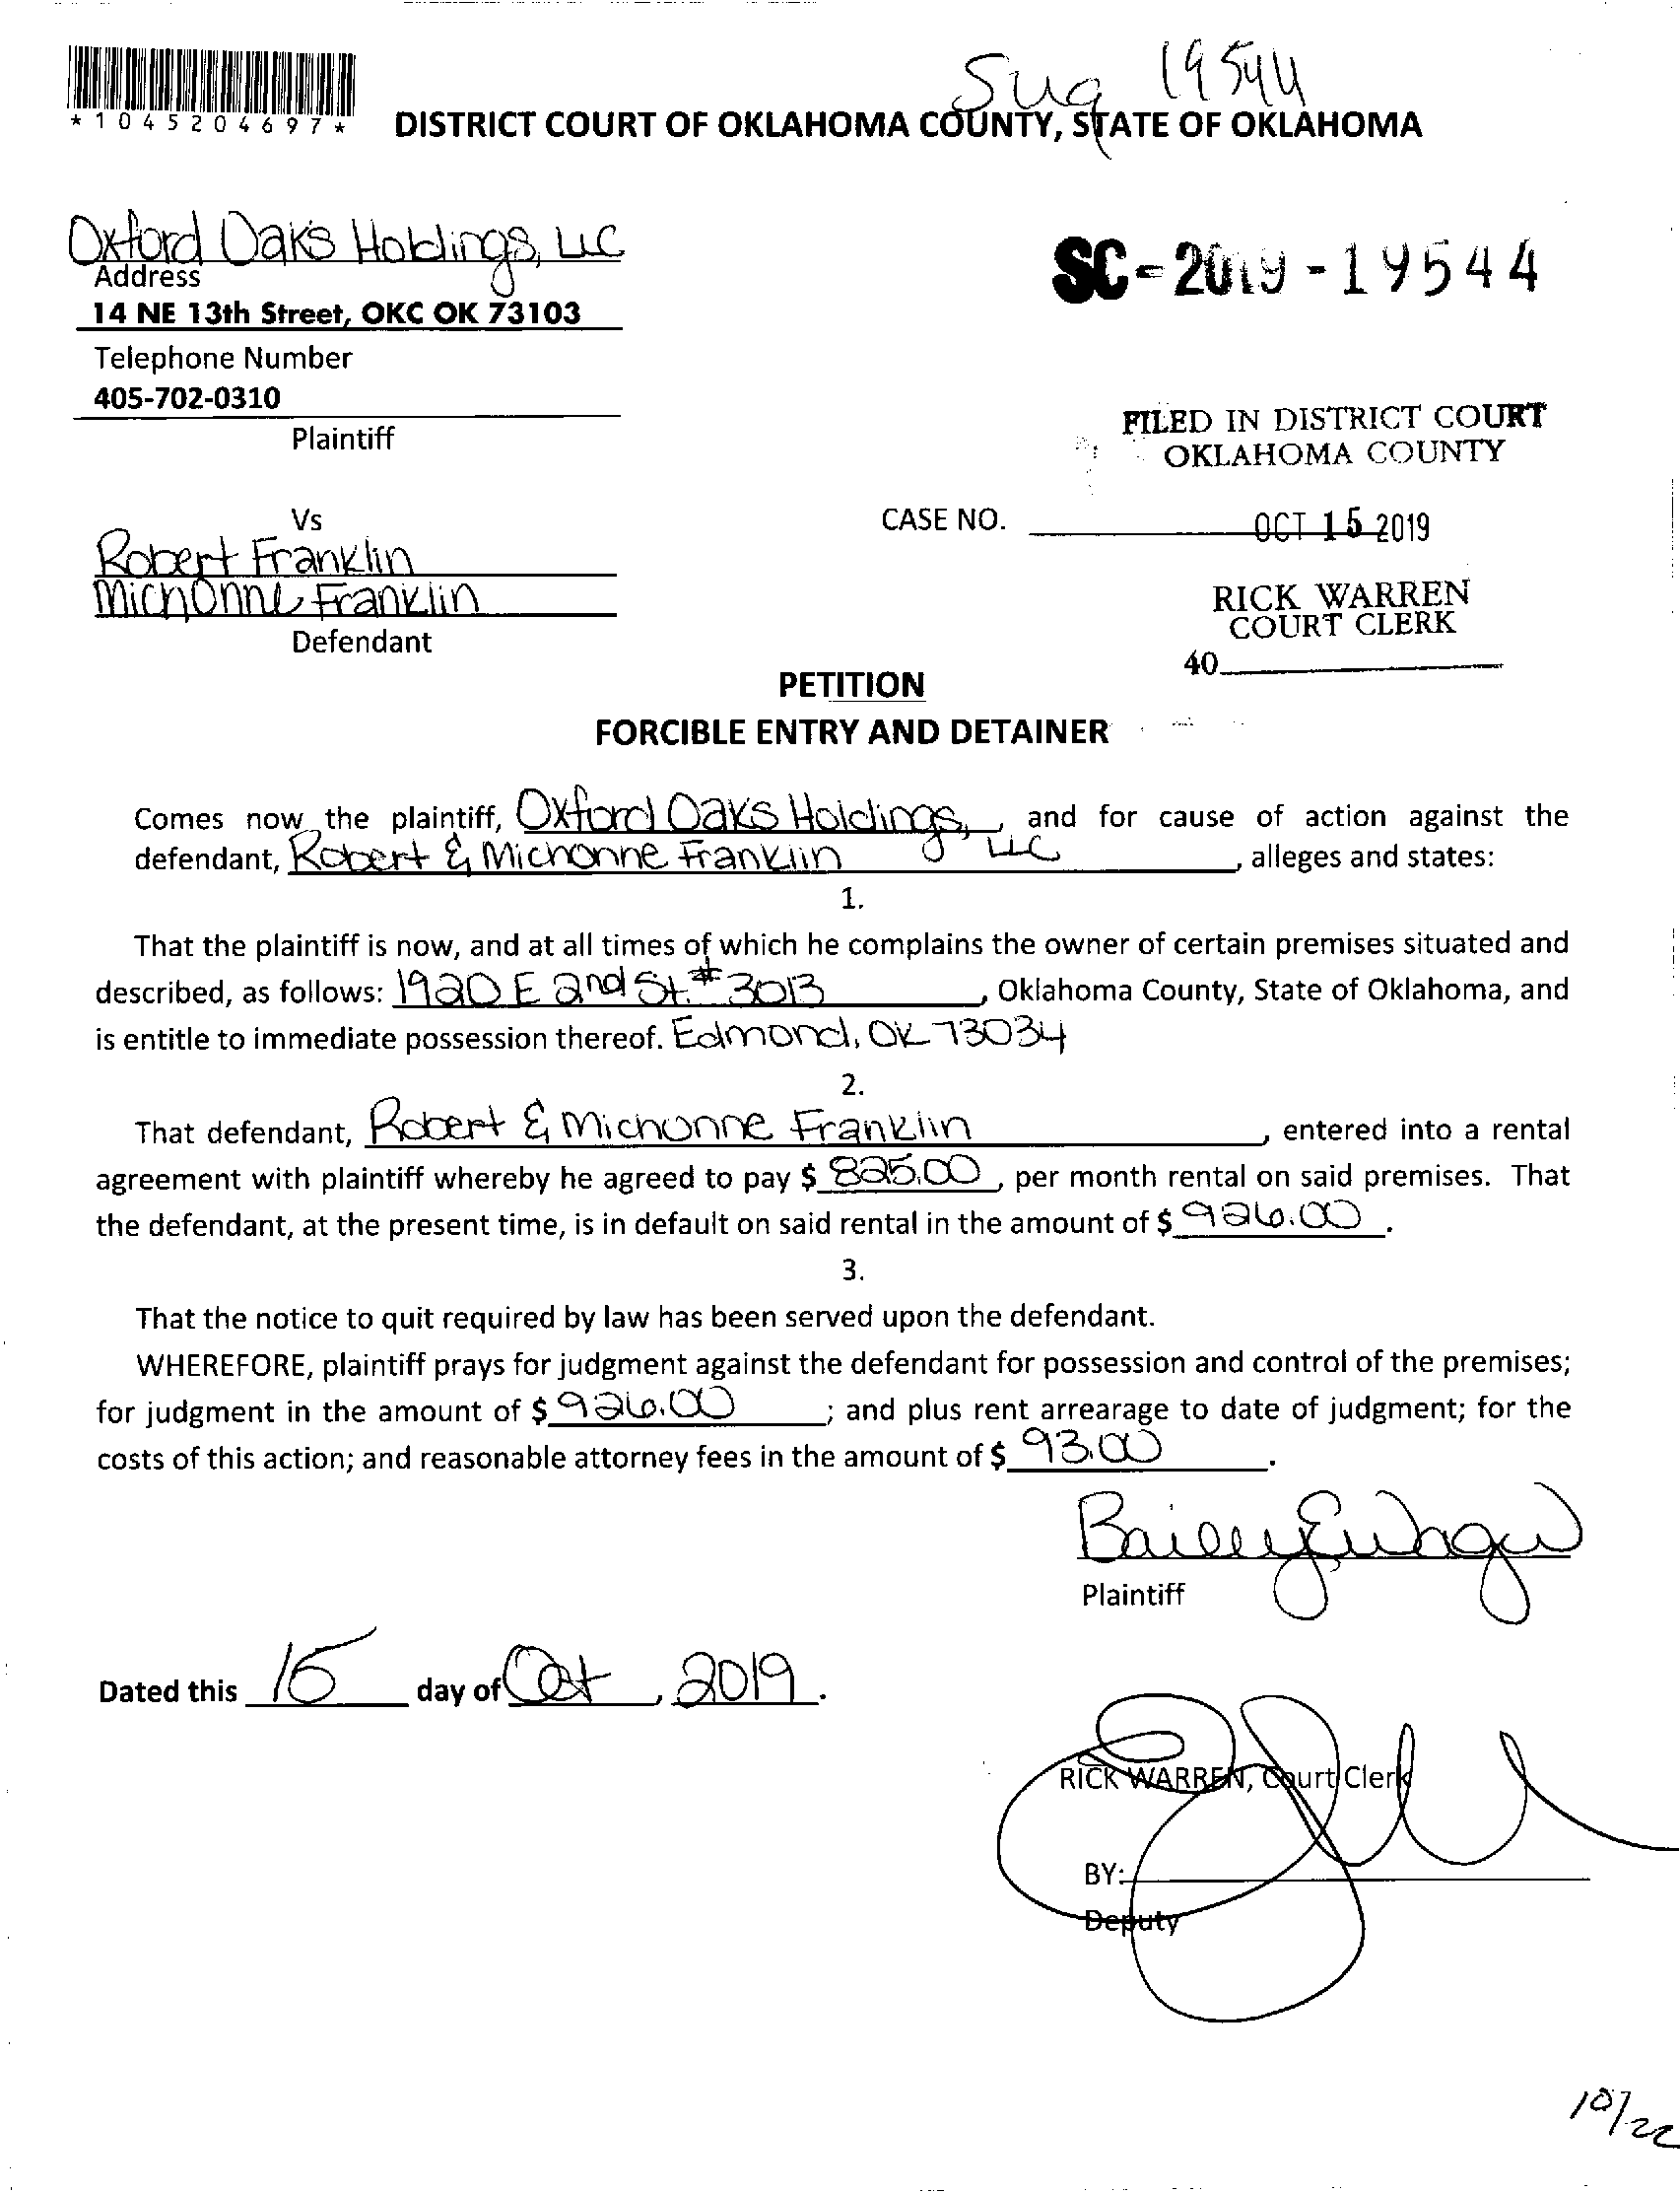 19544
*1045204697*
DISTRICT COURT OF OKLAHOMA COUNTY, STATE OF OKLAHOMA
Oxford Oaks Holdings, LLC
Address
14 NE 13th Street, OKC OK 73103
SC-2019-19544
Telephone Number
405-702-0310
Plaintiff
FILED IN DISTRICT COURT
OKLAHOMA COUNTY
Vs
CASE NO.
OCT 15 2019
Robert Franklin
Michonne Franklin
Defendant
RICK WARREN
COURT CLERK
40
PETITION
FORCIBLE ENTRY AND DETAINER
Comes now the plaintiff, Oxford Oaks Holdings, LLC, and for cause of action against the
defendant, Robert & Michonne Franklin, alleges and states:
1.
That the plaintiff is now, and at all times of which he complains the owner of certain premises situated and
described, as follows: 1920 E 2nd St. #3013, Oklahoma County, State of Oklahoma, and
is entitle to immediate possession thereof. Edmond, OK 73034
2.
That defendant, Robert & Michonne Franklin, entered into a rental
agreement with plaintiff whereby he agreed to pay $ 825.00, per month rental on said premises. That
the defendant, at the present time, is in default on said rental in the amount of $ 926.00.
3.
That the notice to quit required by law has been served upon the defendant.
WHEREFORE, plaintiff prays for judgment against the defendant for possession and control of the premises;
for judgment in the amount of $ 926.00; and plus rent arrearage to date of judgment; for the
costs of this action; and reasonable attorney fees in the amount of $ 93.00.
Plaintiff
Dated this 15 day of Oct, 2019.
RICK WARREN, Court Clerk
BY:
Deputy
10/22